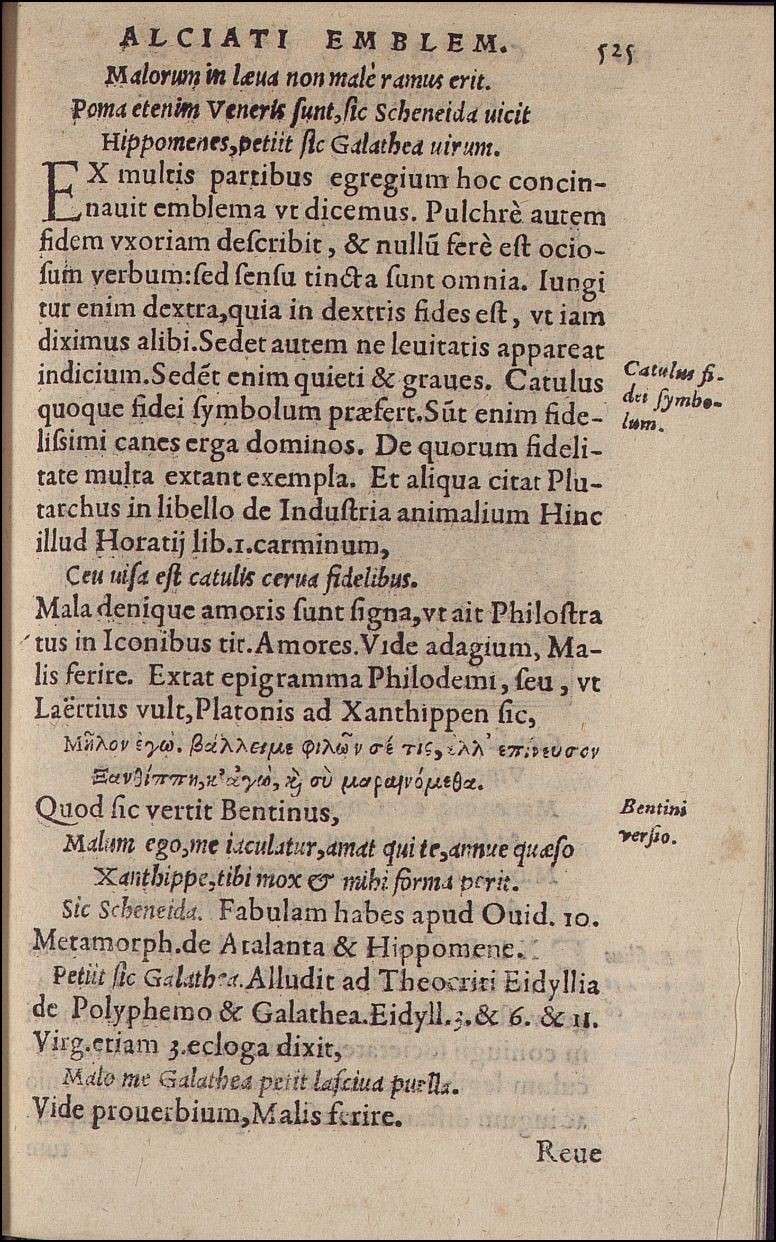 ALCIATI EMBLEM. 525
Malorum in læua non malè ramus erit.
Poma etenim Veneris ſunt,ſic Scheneida uicit
Hippomenes,petiit ſic Galathea uirum.
EX multis partibus egregium hoc concin-
nauit emblema vt dicemus. Pulchrè autem
fidem vxoriam deſcribit, & nullũ ferè eſt ocio-
ſum verbum:ſed ſenſu tincta ſunt omnia. Iungi
tur enim dextra,quia in dextris fides eſt, vt iam
diximus alibi.Sedet autem ne leuitatis appareat
indicium.Sedẽt enim quieti & graues. Catulus
quoque fidei ſymbolum præfert.Sũt enim fide-
liſsimi canes erga dominos. De quorum fideli-
tate multa extant exempla. Et aliqua citat Plu-
tarchus in libello de Induſtria animalium Hinc
illud Horatij lib.1.carminum,
Ceu uiſa eſt catulis cerua fidelibus.
Mala denique amoris ſunt ſigna,vt ait Philoſtra
tus in Iconibus tit.Amores.Vide adagium, Ma-
lis ferire. Extat epigramma Philodemi, ſeu, vt
Laërtius vult,Platonis ad Xanthippen ſic,
Μῆλον ἐγώ. βάλλει με φιλῶν σέ τις, ἀλλ' ἐπίνευσον
Ξανθίππη, κ'αγὼ, κ̀ σὺ μαραινόμεθα.
Quod ſic vertit Bentinus,
Malum ego,me iaculatur,amat qui te,annue quæſo
Xanthippe,tibi mox & mihi forma perit.
Sic Scheneida. Fabulam habes apud Ouid. 10.
Metamorph.de Atalanta & Hippomene.
Petiit ſic Galathea.Alludit ad Theocriti Eidyllia
de Polyphemo & Galathea.Eidyll.3.& 6. & 11.
Virg.etiam 3.ecloga dixit,
Malo me Galathea petit laſciua puella.
Vide prouerbium,Malis ferire.
Reue
Catulus fi-
dei ſymbo-
lum.
Bentini
verſio.